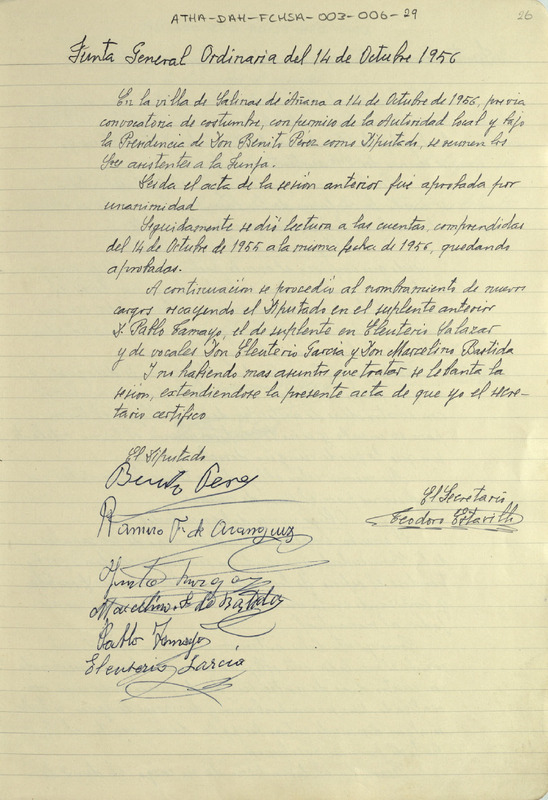 ATHA-DAH-FCHSA-003-006-29
26
Junta General Ordinaria del 14 de Octubre 1956
En la villa de Salinas de Añana a 14 de Octubre de 1956, previa
convocatoria de costumbre, con permiso de la Autoridad local y bajo
la Presidencia de Don Benito Pérez como Diputado, se reunen los
Sres asistentes a la Junta.
Leida el acta de la sesión anterior fué aprobada por
unanimidad
Seguidamente se dió lectura a las cuentas, comprendidas
del 14 de Octubre de 1955 a la misma fecha de 1956, quedando
aprobadas.
A continuación se procedió al nombramiento de nuevos
cargos recayendo el Diputado en el suplente anterior
D. Pablo Tamayo, el de suplente en Eleuterio Salazar
y de vocales Don Eleuterio Garcia y Don Marcelino Bastida
I no habiendo mas asuntos que tratar se lebanta la
sesion, extendiendose la presente acta de que yo el secre-
tario certifico
El Diputado
Benito Perez
El Secretario
Teodoro
Ramiro F. de Aranguiz
Marcelino
Pablo Tamayo
Eleuterio Garcia